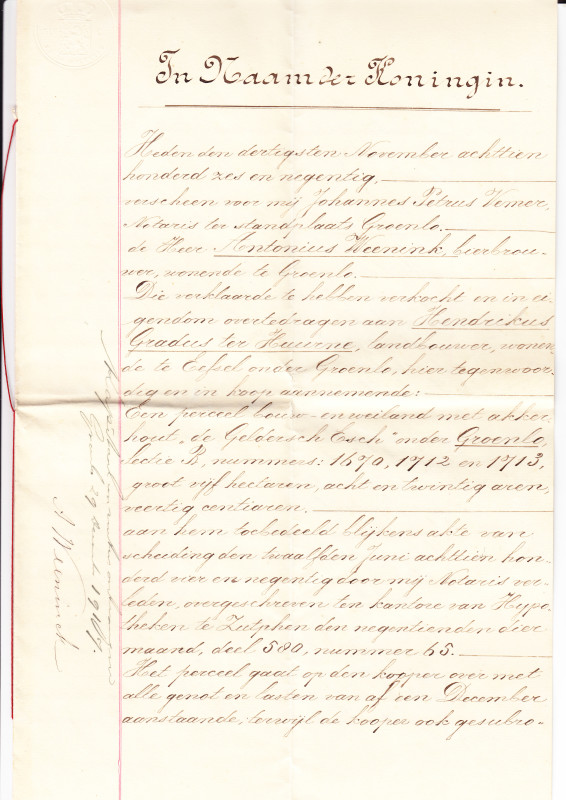 In Naam der Koningin.
Heden den dertigsten November achttien
honderd zes en negentig,
verscheen voor mij Johannes Petrus Vemer,
Notaris ter standplaats Groenlo.
de Heer Antonius Weenink, bierbrou-
wer, wonende te Groenlo.
Die verklaarde te hebben verkocht en in ei-
gendom overtedragen aan Hendrikus
Gradus ter Huerne, landbouwer, wonen
de te Eefsel onder Groenlo, hier tegenwoor-
dig en in koop aannemende:
Een perceel bouw- en weiland met akker-
hout, de Geldersch Esch" onder Groenlo,
sectie B, nummers: 1670, 1712 en 1713,
groot vijf hectaren, acht en twintig aren,
veertig centiaren.
aan hem toebedeeld blijkens akte van
scheiding den twaalfden Juni achttien hon-
derd vier en negentig door mij Notaris ver-
leden, overgeschreven ten kantore van Hypo-
theken te Zutphen den negentienden dier
maand, deel 580, nummer 65.
Het perceel gaat op den kooper over met
alle genot en lasten van af een December
aanstaande, terwijl de kooper ook gesubro-
A Weenink